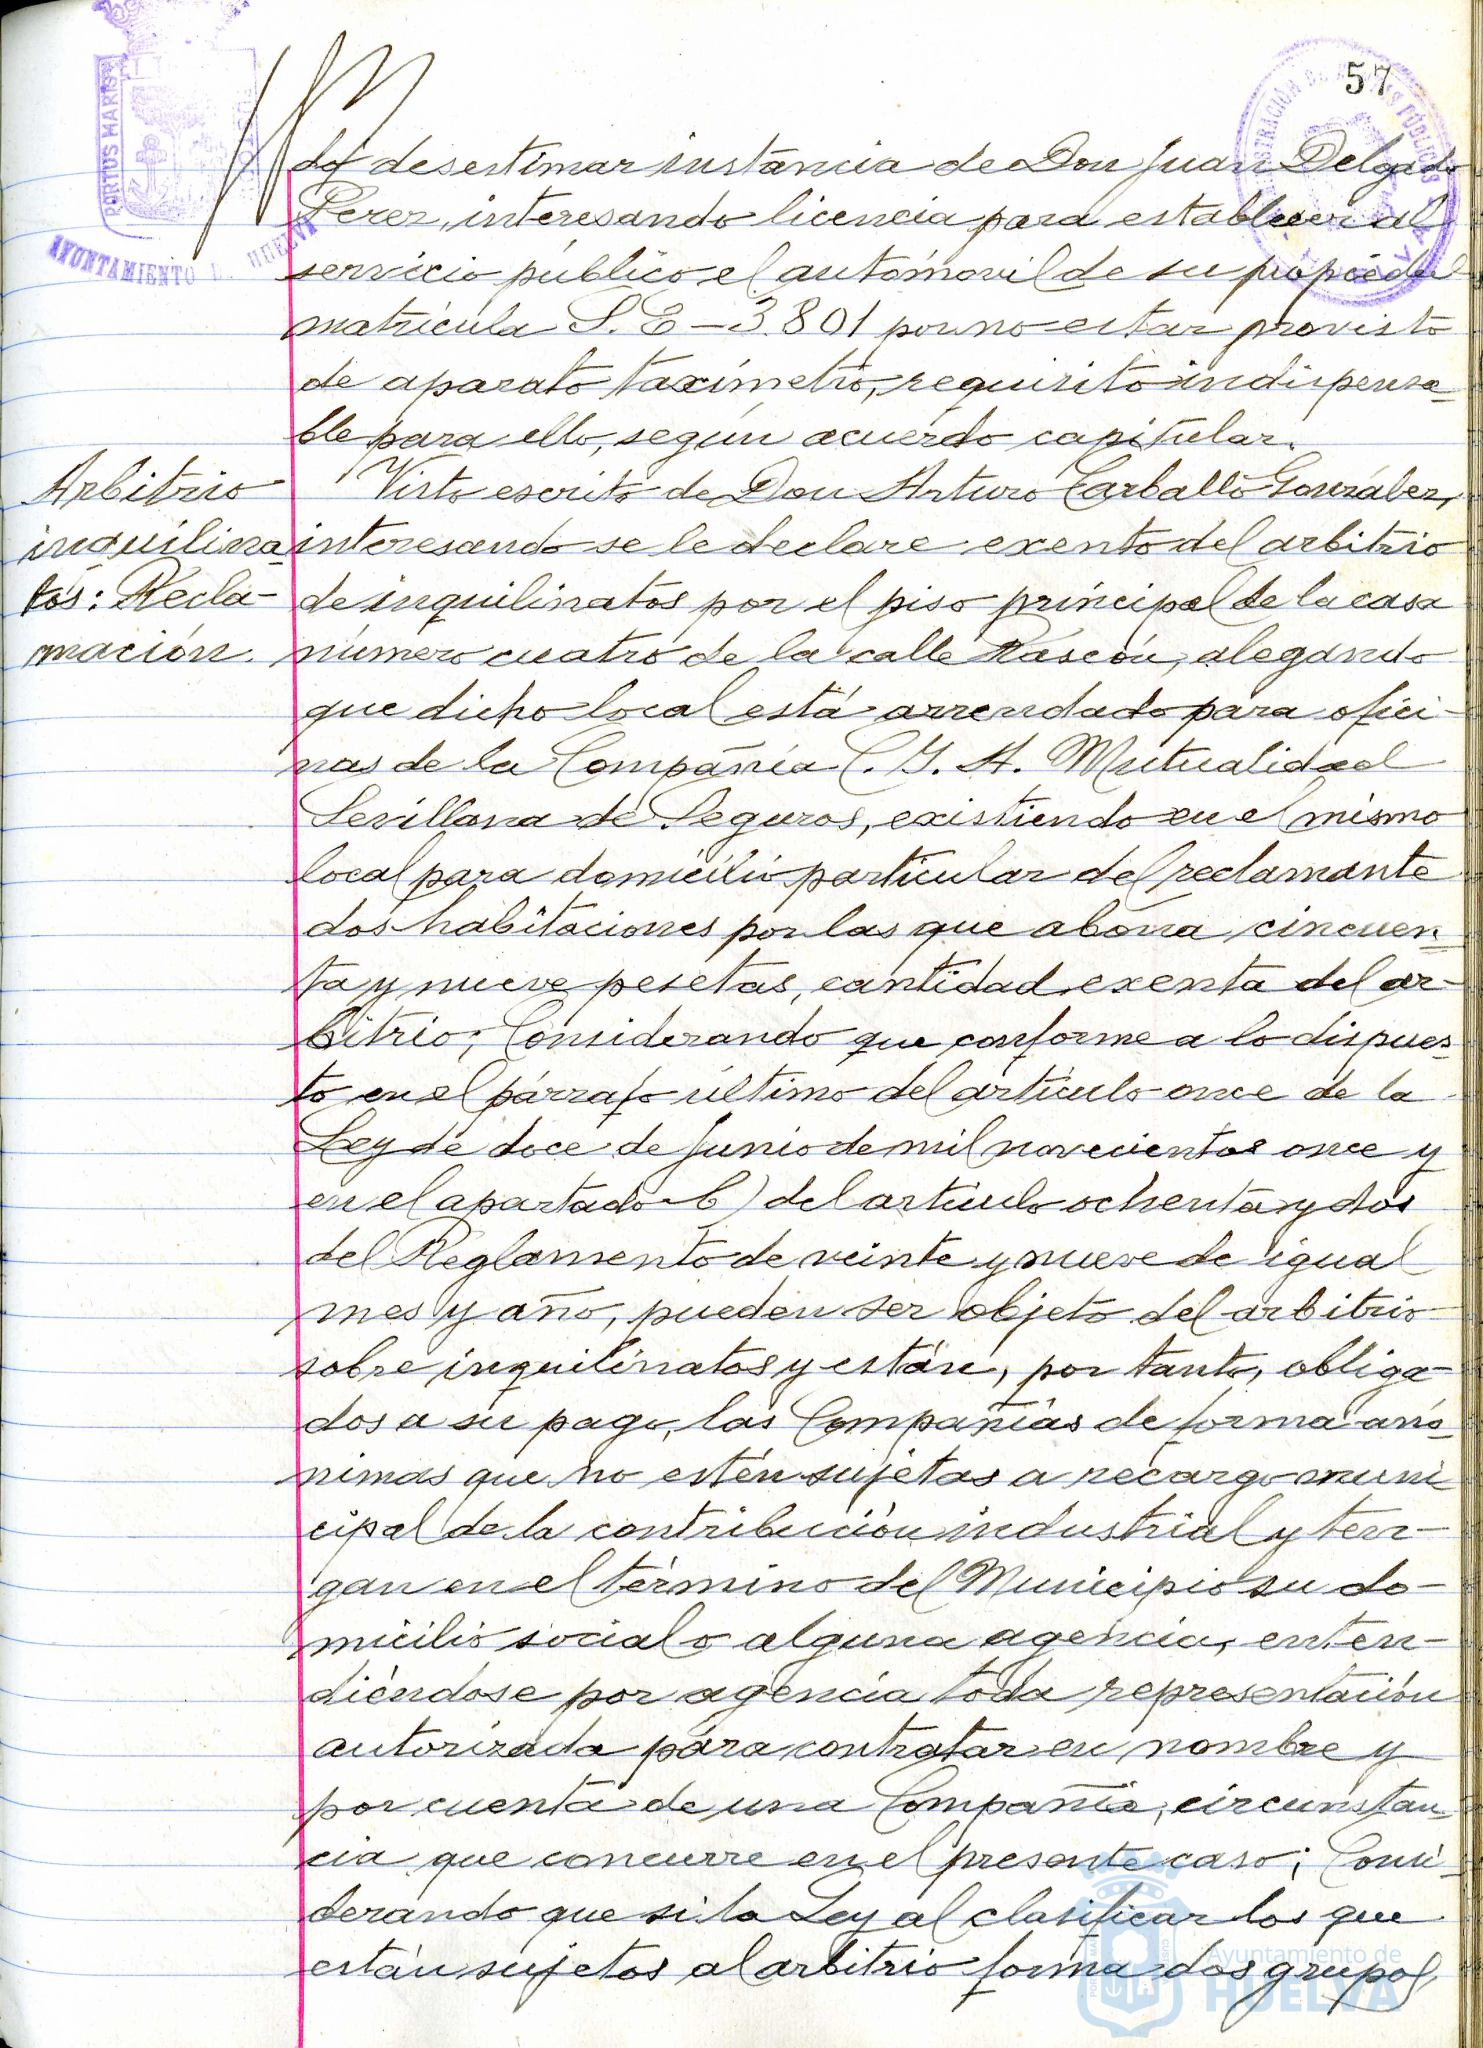 57
PORTUS MARIS
AYUNTAMIENTO DE HUELVA
desestimar instancia de Don Juan Delgado
Perez, interesando licencia para establecer al
servicio público el automóvil de su propiedad
matrícula S.E-3801 por no estar provisto
de aparato taxímetro, requisito indispensa-
ble para ello, según acuerdo capitular.
Arbitrio
inquilina-
tos: Recla-
mación.
Visto escrito de Don Arturo Carballo González,
interesando se le declare exento del arbitrio
de inquilinatos por el piso principal de la casa
número cuatro de la calle Rascón, alegando
que dicho local está arrendado para ofici-
nas de la Compañía C. G. A. Mutualidad
Sevillana de Seguros, existiendo en el mismo
local para domicilio particular del reclamante
dos habitaciones por las que abona cincuen-
ta y nueve pesetas, cantidad exenta del ar-
bitrio; Considerando que conforme a lo dispues-
to en el párrafo último del artículo once de la
Ley de doce de Junio de mil novecientos once y
en el apartado b) del artículo ochenta y dos
del Reglamento de veinte y nueve de igual
mes y año, pueden ser objeto del arbitrio
sobre inquilinatos y están, por tanto, obliga-
dos a su pago, las Compañías de forma anó-
nimas que no estén sujetas a recargo muni
cipal de la contribución industrial y ten-
gan en el término del Municipio su do-
micilio social o alguna agencia, enten-
diéndose por agencia toda representación
autorizada para contratar en nombre y
por cuenta de una Compañía, circunstan-
cia que concurre en el presente caso; Consi-
derando que si la Ley al clasificar los que
están sujetos al arbitrio forma dos grupos,
Ayuntamiento de
HUELVA